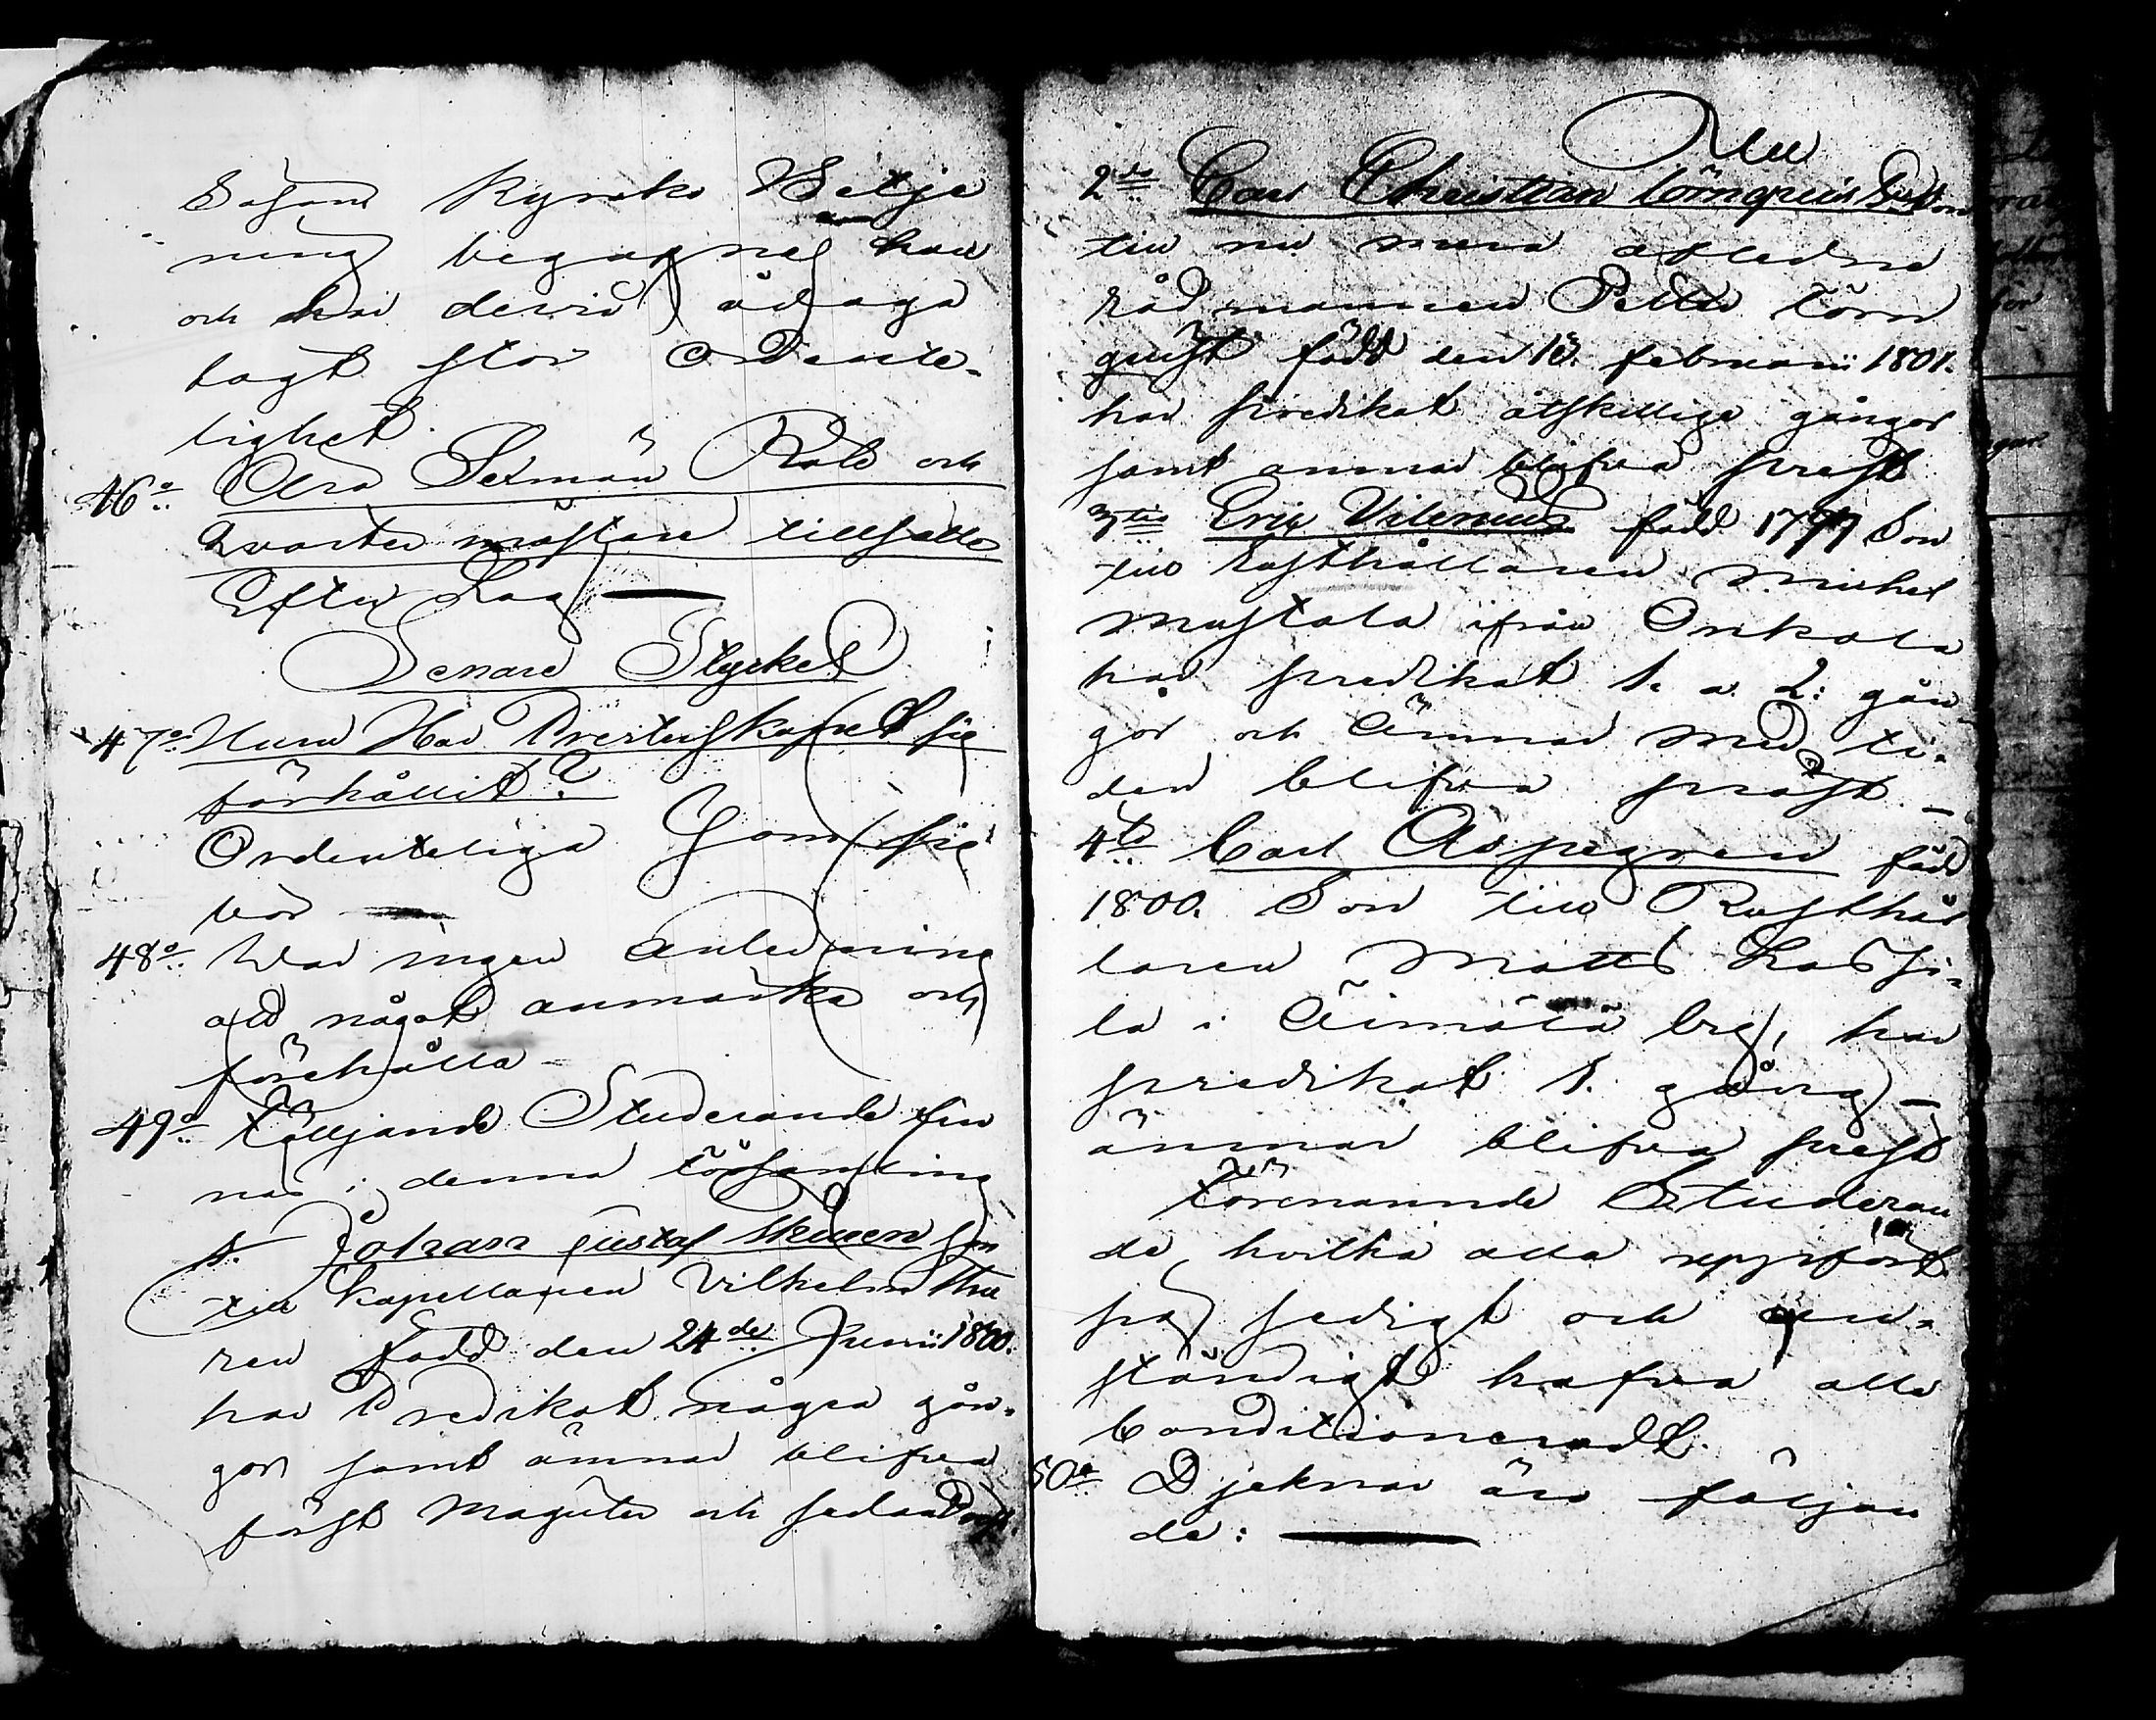 Såsom Kyrsko Betje
ning begagnas han
och har dervid ådaga
lagt stor Ordente-
lighet.
46o Äro Sexmän Rote och
Qvarter mästare tillsatte
Efter Lag
Senare Stycket
47o Huru Har Presterskapet sig
förhållit?
Ordenteliga Som sig
bör
48o War ingen anledning
att något anmärka och
förehålla
49o Följande Studerande fin
nas i denna Församling
1. Johan Gustaf Thuren son
till Kapellanen Vilhelm Thu
ren född den 24de Junii 1800.
har Predikat några gån-
gor samt ämnar blifva
först Magister och sedan
2do Carl Christian Törnquist Son
till nu mera aflidne
Rådmannen Petter Törn
quist född den februarii 1801.
har predikat åtskillige gångor
samt ämnar blifva prest
3tio Eric Vilenius född Son
till Rusthållaren Michel
Mustala ifrån Onkala
har predikat 1. a 2: gån
gor och Ämnar Med ti-
den blifva präst
4to Carl Aspegren född
1800. Son till Rusthål
laren Matts
la i Äimälä by, har
predikat 1. gång
ämnar blifva prest
Förenämnde Studeran
de, hvilka alla uppfört
sig sedigt och an-
ständigt hafva alla
Conditioneradt.
50o Djeknar äro följan
de: